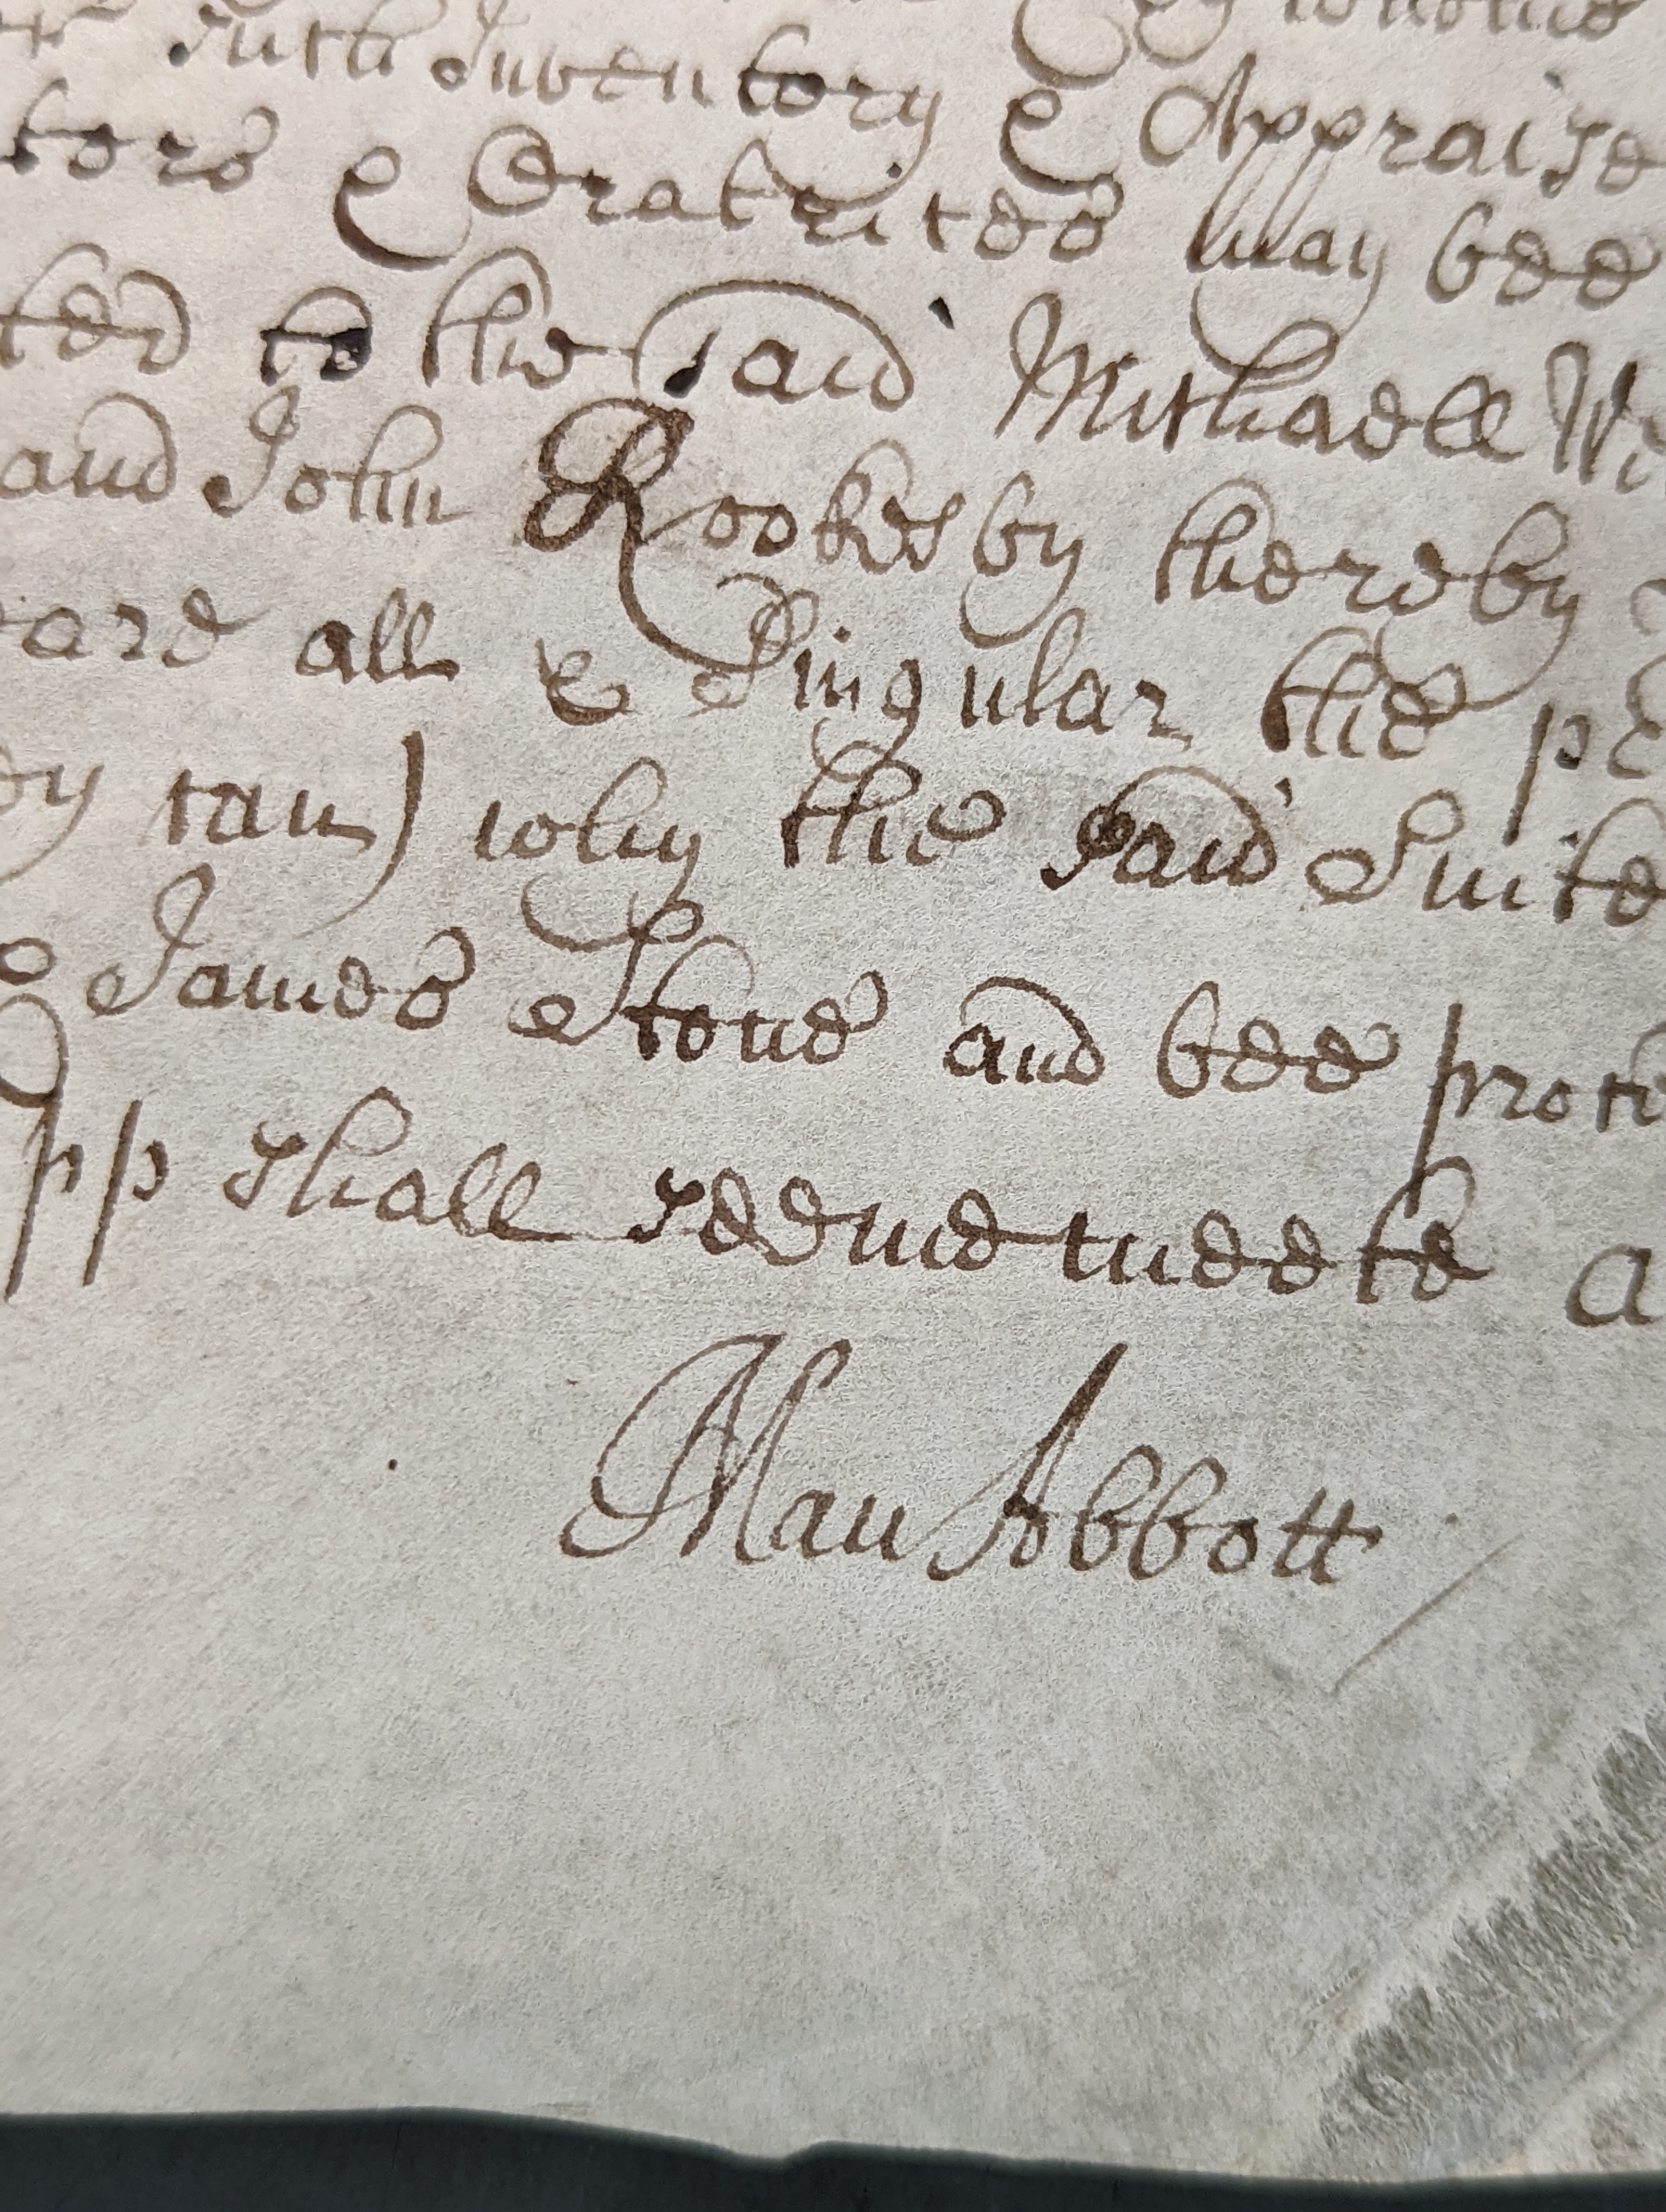 such Inventory & Appraise
tors & Oratrices may bee
ted to the said Michaell Wi
and John Rookesby thereby
ard all & Singular the pe
by can) why the said Suite
James Stone and bee proce
pp shall seeme meete a
Mau Abbott